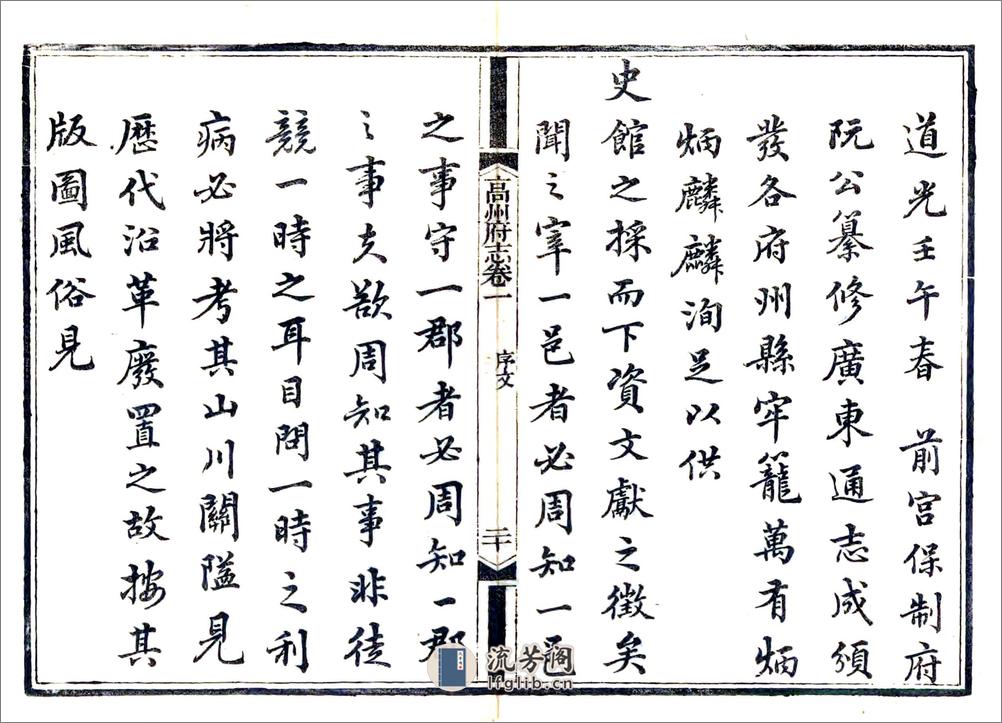 道光壬午春　前宮保制府
阮公纂修廣東通志成頒
發各府州縣牢籠萬有炳
炳麟麟洵足以供
史館之採而下資文獻之徵矣
聞之宰一邑者必周知一邑
高州府志卷一
序文
二十
之事守一郡者必周知一郡
之事夫欲周知其事非徒
競一時之耳目問一時之利
病必將考其山川關隘見
歷代沿革廢置之故按其
版圖風俗見
流芳閣
lfglib.cn